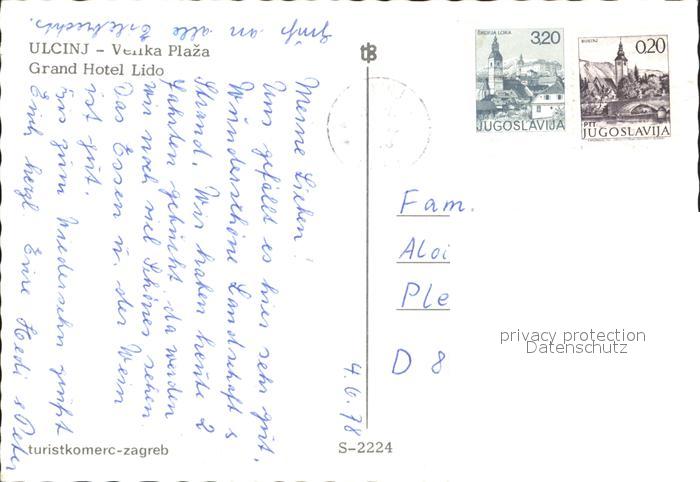 Gruß an alle
ULCINJ - Velika Plaža
Grand Hotel Lido
ŠKOFJA LOKA
3,20
JUGOSLAVIJA
BOHINJ
0,20
PTT
JUGOSLAVIJA
Meine Lieben!
Uns gefällt es hier sehr gut.
Wunderschöne Landschaft &
Strand. Wir haben heute 2
Fahrten gebucht da werden
wir noch viel Schönes sehen.
Das Essen u. der Wein
ist gut.
Bis zum Wiedersehn grüßt
Euch herzl. Eure Hedi & Peter
4.6.78
Fam.
Aloi
Ple
D 8
privacy protection
Datenschutz
turistkomerc-zagreb
S-2224